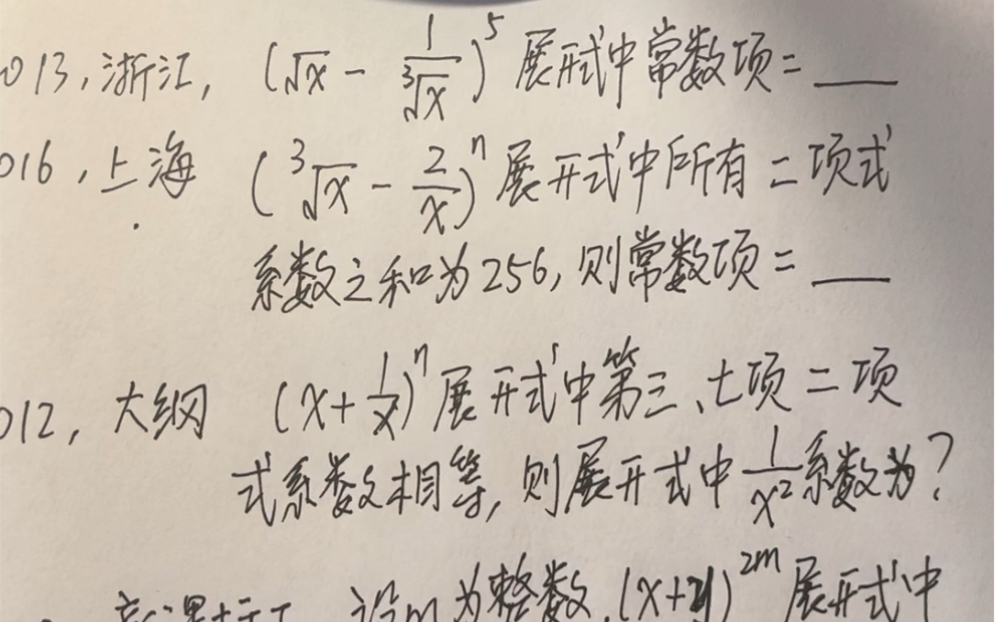 013, 浙江, (√x - 1/∛x)^5 展开式中常数项 = ___
016, 上海 (∛x - 2/x)^n 展开式中所有二项式
系数之和为256, 则常数项 = ___
012, 大纲 (x + 1/x)^n 展开式中第三、七项二项
式系数相等, 则展开式中 1/x² 系数为?
设m为整数, (x+y)^2m 展开式中